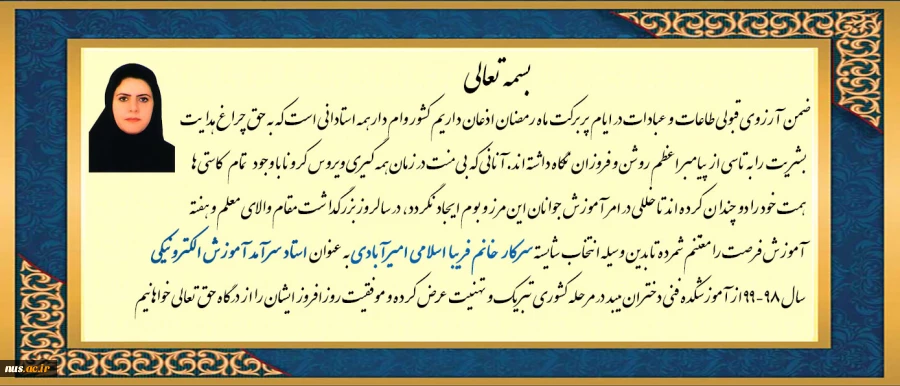 بسمه تعالی
ضمن آرزوی قبولی طاعات و عبادات در ایام پر برکت ماه رمضان اذعان داریم کشور وام دار همه استادانی است که به حق چراغ هدایت
بشریت را به تاسی از پیامبر اعظم روشن و فروزان نگاه داشته اند، آنانی که بی منت در زمان همه گیری ویروس کرونا باوجود تمام کاستی ها
همت خود را دو چندان کرده اند تا خللی در امر آموزش جوانان این مرز و بوم ایجاد نگردد، در سالروز بزرگداشت مقام والای معلم و هفته
آموزش فرصت را مغتنم شمرده تا بدین وسیله انتخاب شایسته سرکار خانم فریبا اسلامی امیرآبادی به عنوان استاد سرآمد آموزش الکترونیکی
سال ۹۸-۹۹ از آموزشکده فنی دختران میبد در مرحله کشوری تبریک و تهنیت عرض کرده و موفقیت روز افزون ایشان را از درگاه حق تعالی خواهانیم
nus.ac.ir